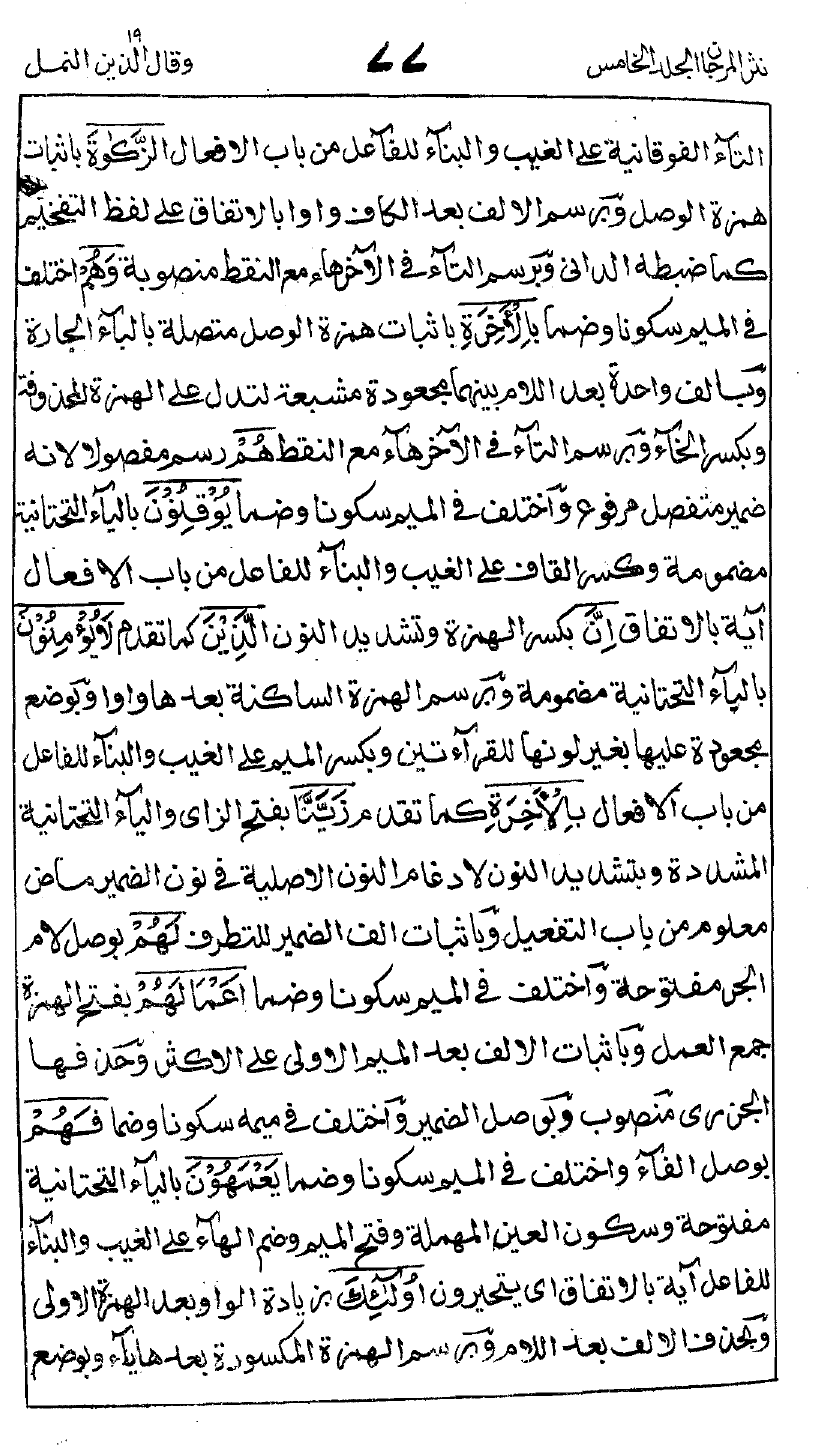 نثر المرجان المجلد الخامس
٧٧
وقال الذين ١٩ النمل
التآء الفوقانية على الغيب والبنآء للفاعل من باب الافعال الزَّكٰوةَ باثبات
همزة الوصل وَبرسم الالف بعد الكاف واوا بالاتفاق على لفظ التفخيم
كما ضبطه الدانى وَبرسم التآء فى الآخرهاء مع النقط منصوبة وَهُمْ اختلف
فى الميم سكونا وضما بِالْاٰخِرَةِ باثبات همزة الوصل متصلة بالبآء الجارة
وَبالف واحدة بعد اللام بينهما مجعودة مشبعة لتدل على الهمزة المحذوفة
وبكسر الخآء وَبرسم التآء فى الآخرهآء مع النقط هُمْ رسم مفصولا لانه
ضمير منفصل مرفوع وَاختلف فى الميم سكونا وضما يُوْقِنُوْنَ باليآء التحتانية
مضمومة وكسر القاف على الغيب والبنآء للفاعل من باب الافعال
آية بالاتفاق اِنَّ بكسر الهمزة وتشديد النون الَّذِيْنَ كما تقدم لَايُؤْمِنُوْنَ
باليآء التحتانية مضمومة وَبرسم الهمزة الساكنة بعدها واوا وَبوضع
مجعودة عليها بغير لونها للقرآءتين وبكسر الميم على الغيب والبنآء للفاعل
من باب الافعال بِالْاٰخِرَةِ كما تقدم زَيَّنَّا بفتح الزاى واليآء التحتانية
المشددة وبتشديد النون لادغام النون الاصلية فى نون الضمير ماض
معلوم من باب التفعيل وَباثبات الف الضمير للتطرف لَهُمْ بوصل لام
الجر مفتوحة وَاختلف فى الميم سكونا وضما اَعْمَالَهُمْ بفتح الهمزة
جمع العمل وَباثبات الالف بعد الميم الاولى على الاكثر وَحذفها
الجزرى مَنصوب وَبوصل الضمير وَاختلف فى ميمه سكونا وضما فَهُمْ
بوصل الفآء واختلف فى الميم سكونا وضما يَعْمَهُوْنَ باليآء التحتانية
مفتوحة وسكون العين المهملة وفتح الميم وضم الهآء على الغيب والبنآء
للفاعل آية بالاتفاق اى يتحيرون اُولٰٓئِكَ بزيادة الواو بعد الهمزة الاولى
وَبحذف الالف بعد اللام وَبرسم الهمزة المكسورة بعدها يآء وبوضع